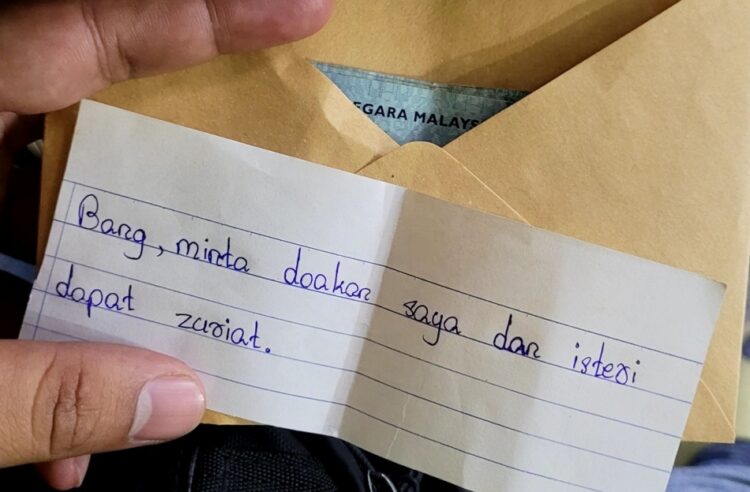 EGARA MALAYS
Bang, minta doakan saya dan isteri
dapat zuriat.